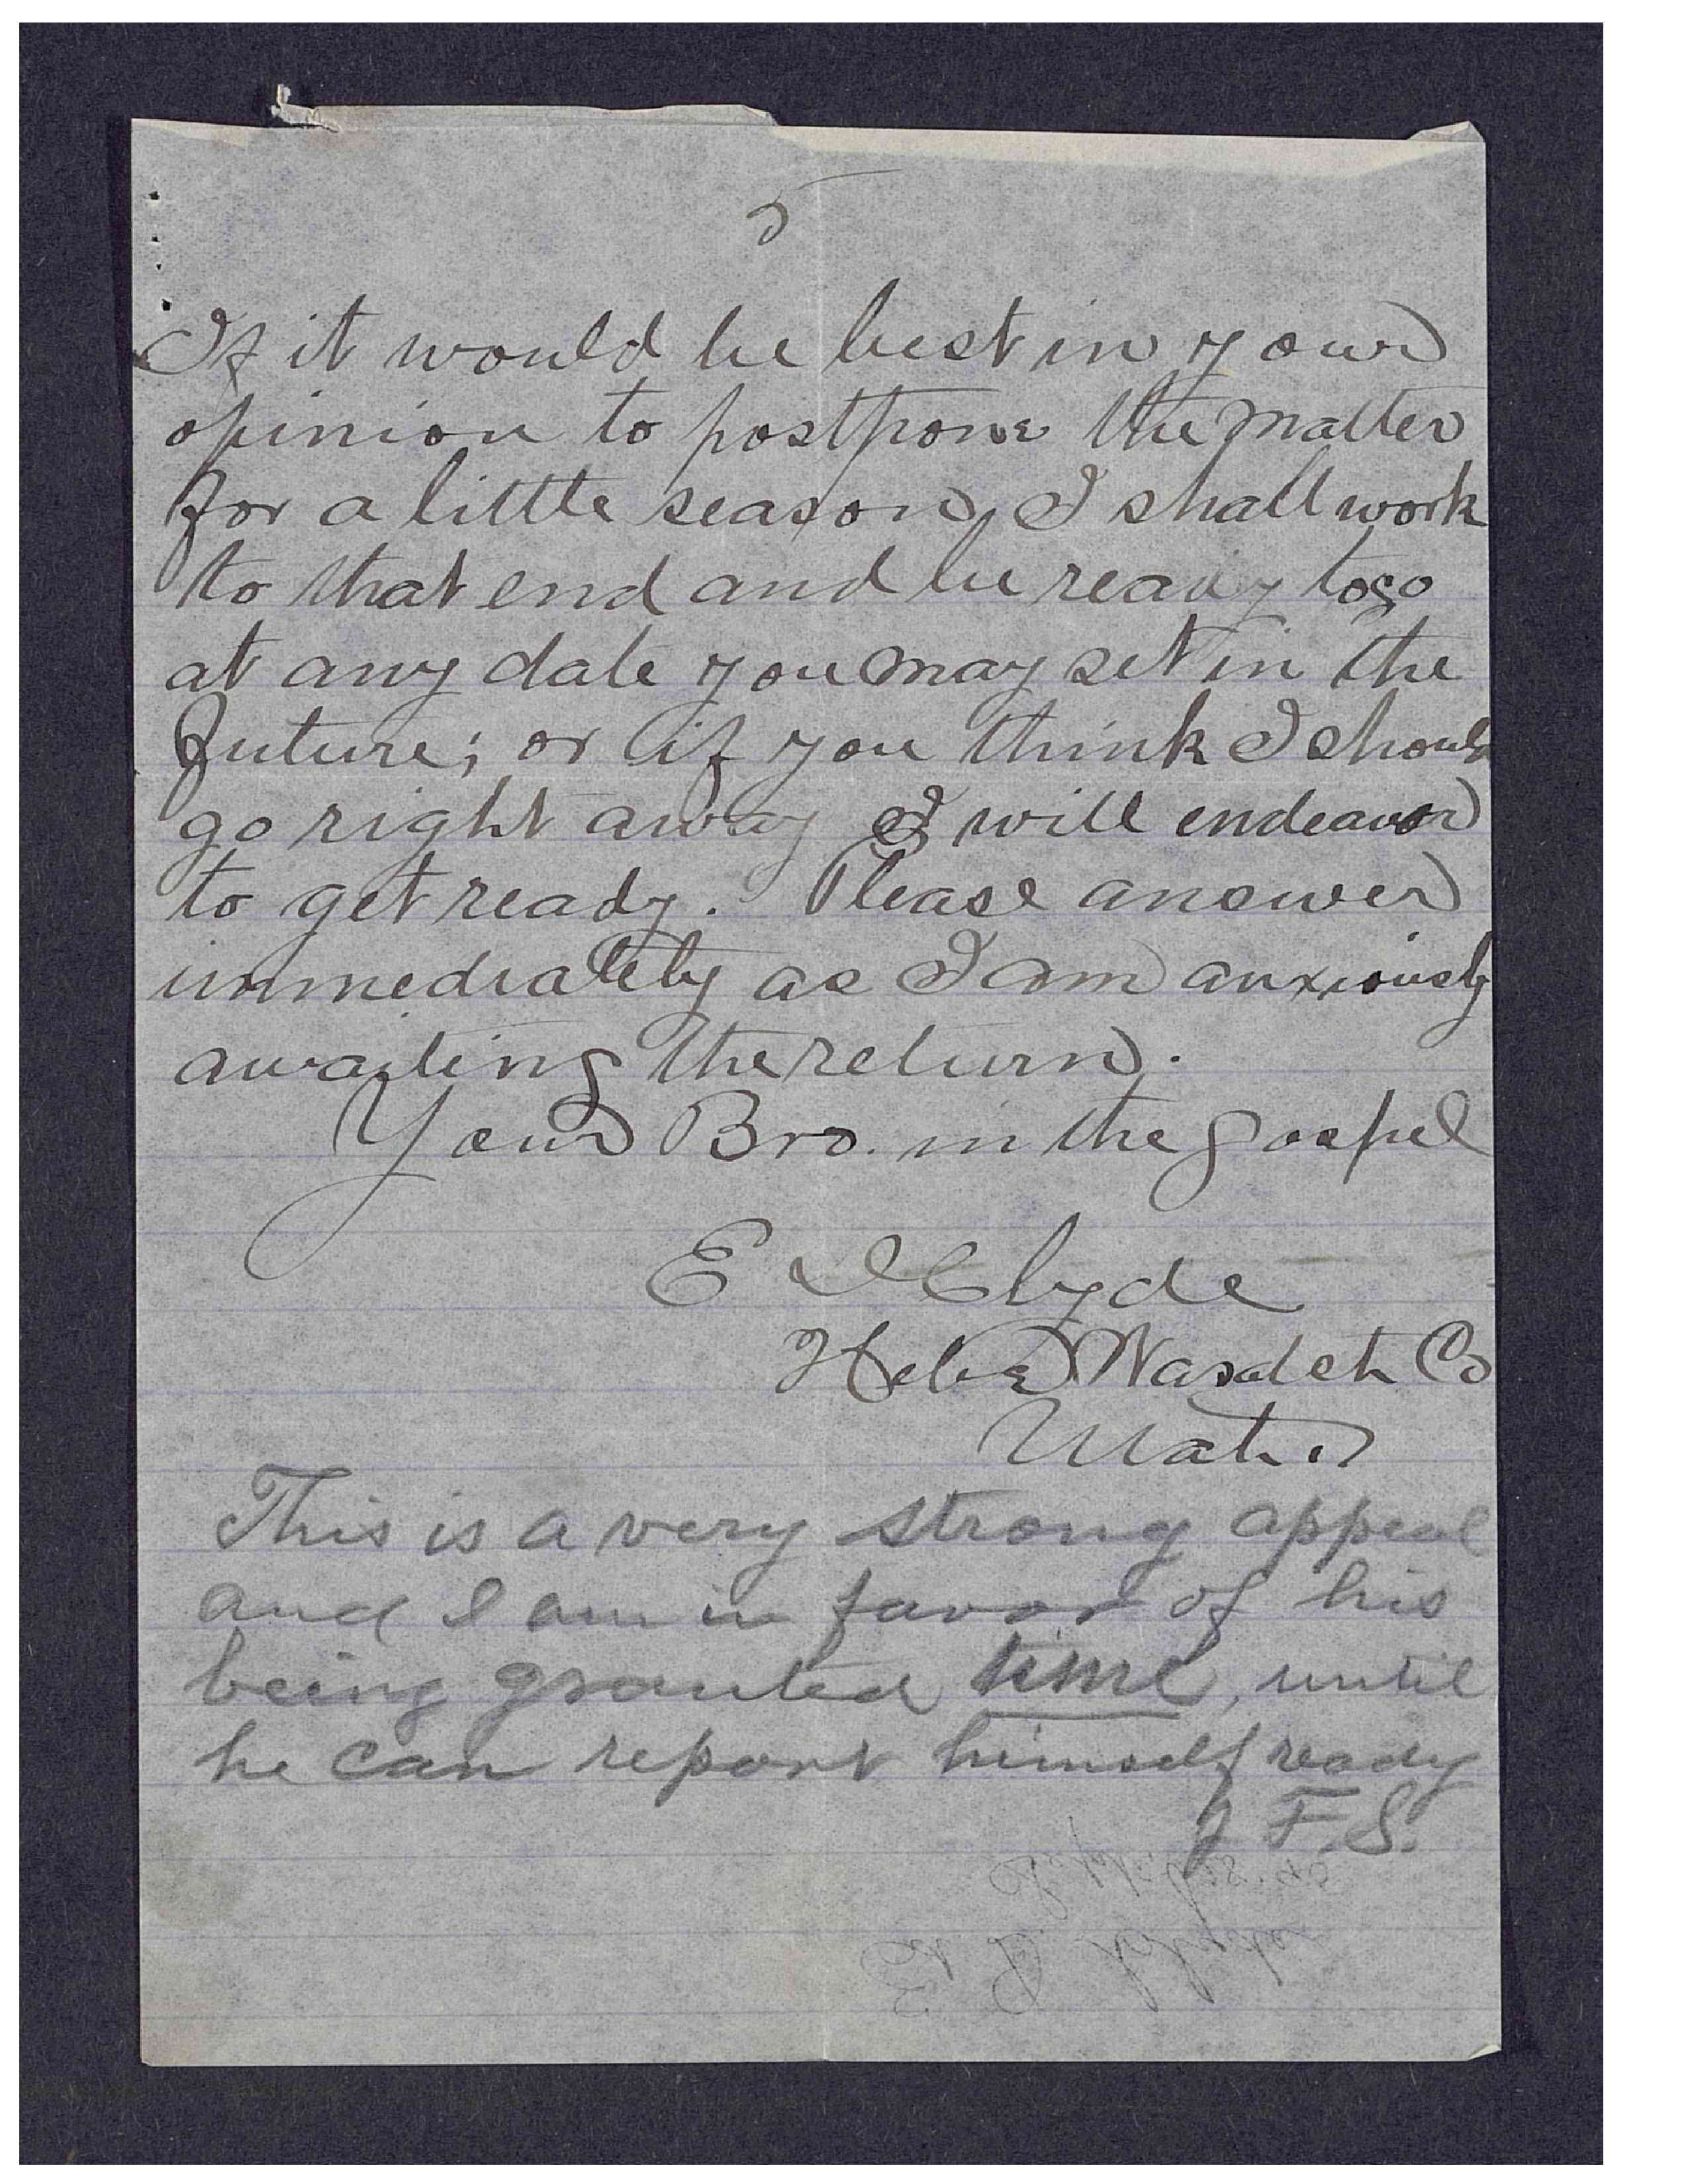 5
If it would be best in your
opinion to postpone the matter
for a little season, I shall work
to that end and be ready to go
at any date you may set in the
future; or if you think I should
go right away I will endeavor
to get ready. Please answer
immediately as I am anxiously
awaiting the return.
Your Bro. in the gospel
E D Clyde
Heber Wasatch Co
Utah.
This is a very strong appeal
and I am in favor of his
being granted time, until
he can report himself ready
J. F. S.